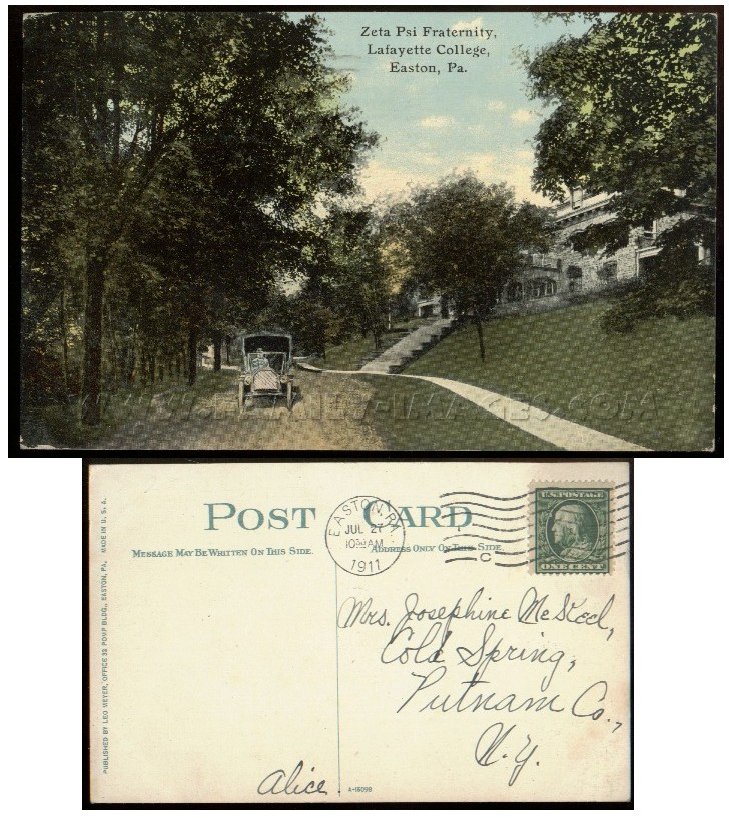 Zeta Psi Fraternity,
Lafayette College,
Easton, Pa.
POST CARD
MESSAGE MAY BE WRITTEN ON THIS SIDE.
ADDRESS ONLY ON THIS SIDE.
EASTON, PA.
JUL 27
1911
C
U.S. POSTAGE
ONE CENT
PUBLISHED BY LEO MEYER, OFFICE 32 POMP BLDG., EASTON, PA. MADE IN U. S. A.
Mrs. Josephine
Cold Spring,
Putnam Co.,
N.Y.
Alice.
A-16098